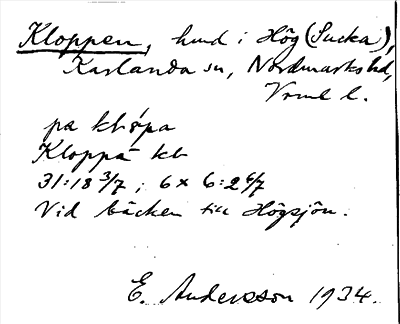 Kloppen, hmd i Hög (Sucka),
Karlanda sn, Nordmarks hd,
Vrml l.
pa klåpa
Kloppa kb
31:18 3/7; 6 x 6:2 6/7
Vid bäcken till Högsjön.
E. Andersson 1934.